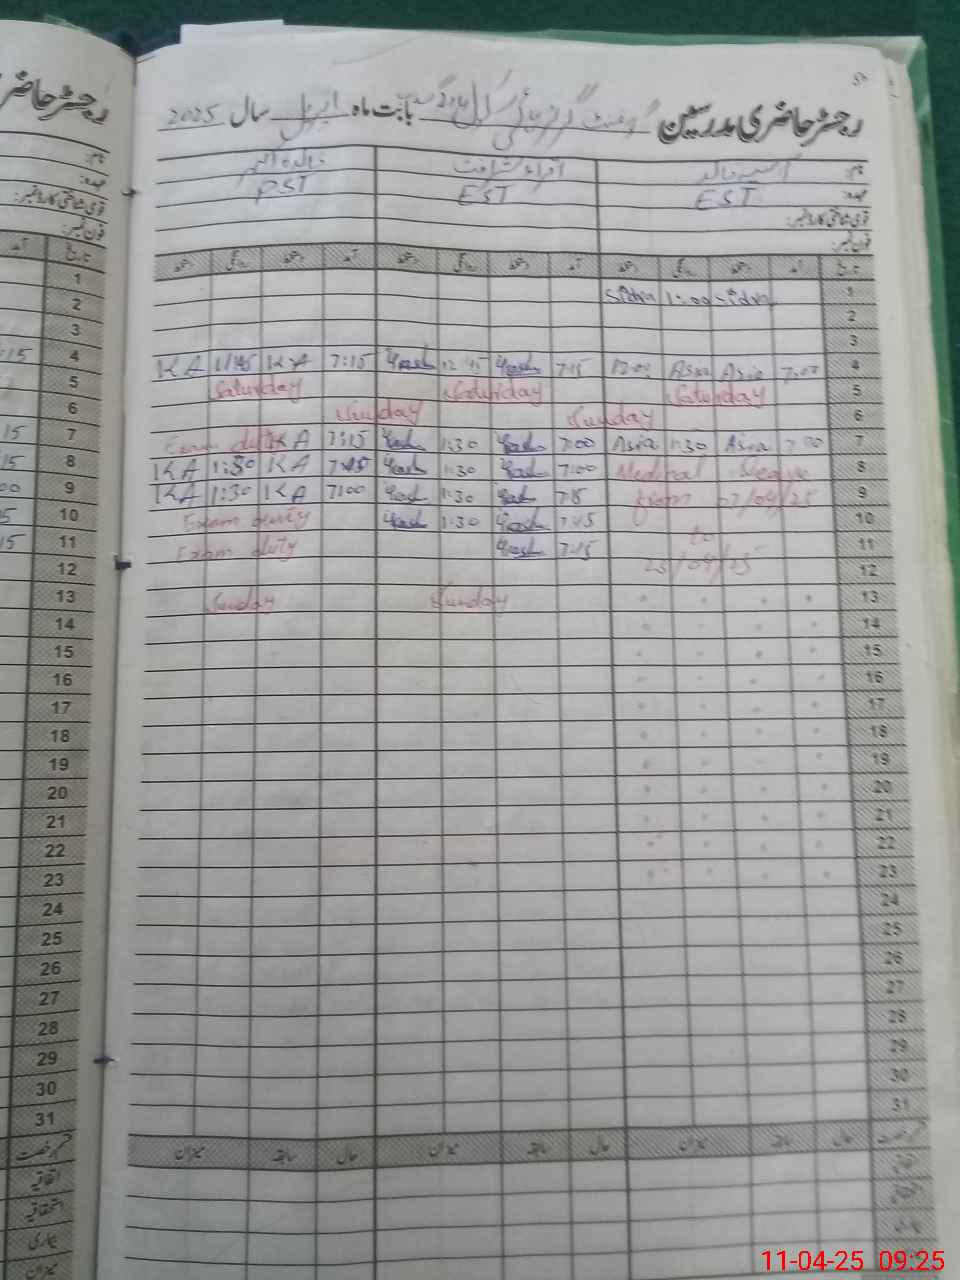 رجسٹر حاضری مدرسین گورنمنٹ گرلز ہائی سکول بابت ماہ اپریل سال 2025
نام: آسیہ خالد اقراء شرافت خالدہ
عہدہ: EST EST PST
قومی شناختی کارڈ نمبر:
فون نمبر:
تاریخ آمد دستخط روانگی دستخط آمد دستخط روانگی دستخط آمد دستخط روانگی دستخط
1 Sidra 1:00 Sidra
2
3
4 7:00 Asia Asia 12:00 7:15 12:45 7:15 KA 11:45 KA
5 Saturday Saturday Saturday
6 Sunday Sunday
7 7:00 Asia 1:30 Asia 7:00 1:30 7:15 KA Exam duty
8 Medical Leave 7:00 1:30 7:15 KA 1:30 KA
9 from 07/04/25 7:15 1:30 7:00 KA 1:30 KA
10 to 7:15 1:30 Exam duty
11 23/04/25 7:15 Exam duty
12
13 Sunday Sunday
14
15
16
17
18
19
20
21
22
23
24
25
26
27
28
29
30
31
قسم رخصت حال سابقہ میزان حال سابقہ میزان حال سابقہ میزان
اتفاقیہ
استحقاقیہ
بیماری
میزان
رجسٹر حاضر
نام:
عہدہ:
قومی شناختی کارڈ نمبر:
فون نمبر:
تاریخ آمد
1
2
3
4 :15
5
6
7 15
8 15
9 00
10 5
11 15
12
13
14
15
16
17
18
19
20
21
22
23
24
25
26
27
28
29
30
31
قسم رخصت
اتفاقیہ
استحقاقیہ
بیماری
میزان
11-04-25 09:25